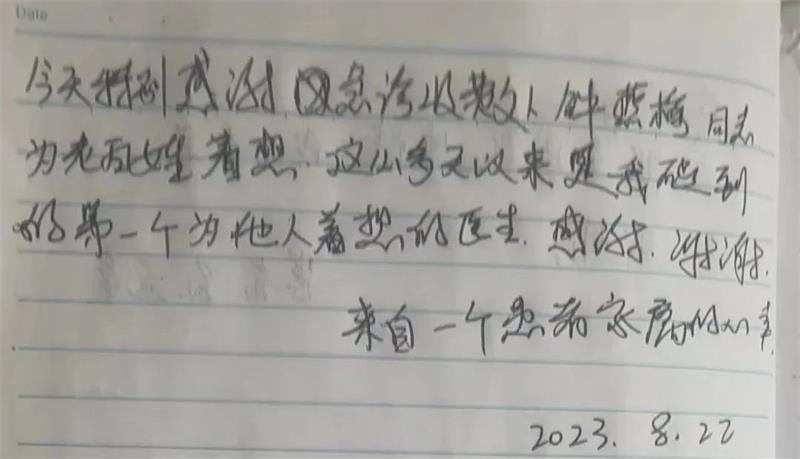 Date
今天特别感谢因急诊收费人钟照梅同志
为老百姓着想.这么多天以来是我碰到
的第一个为他人着想的医生.感谢.谢谢.
来自一个患者家属的心声.
2023.8.22